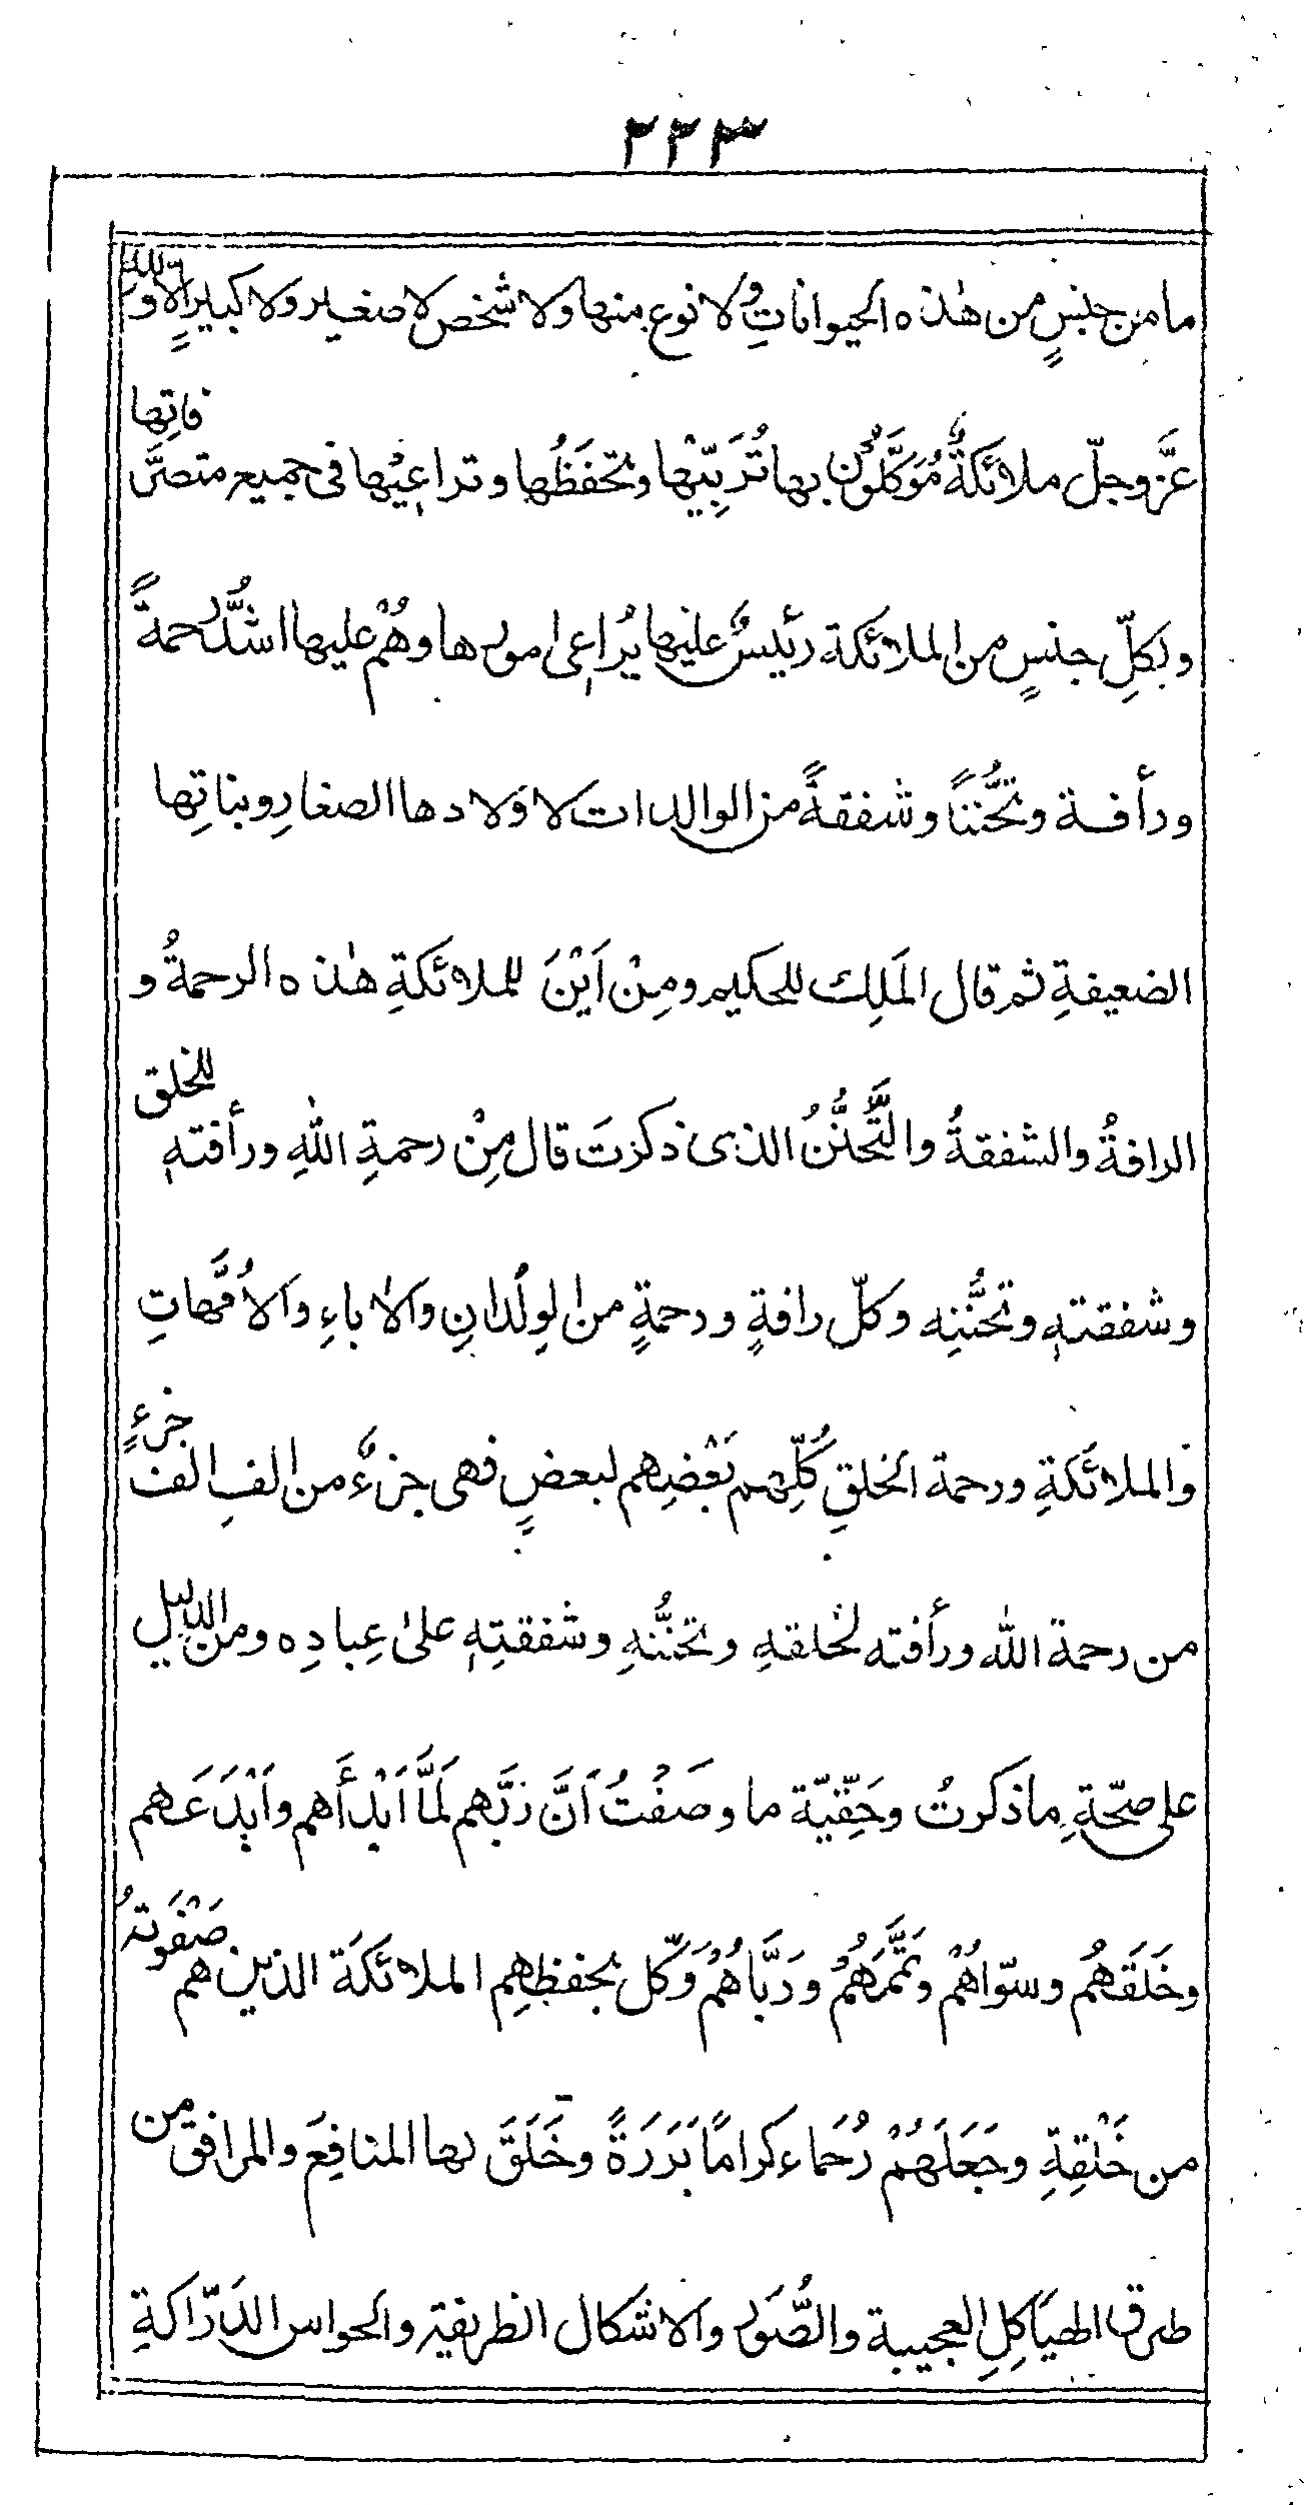 ٢٢٣
ما من جنسٍ من هٰذه الحيواناتِ ولا نوعٍ منها ولا شخص لا صغير ولا كبيرٍ الّا وللهِ
عَزَّ وجلّ ملائكةٌ مُوَكَّلُوْن بها تُرَبِّيْها وتحفَظُها وتراعِيْها فى جميع متصرَّفاتِها
ولكلِّ جنسٍ من الملائكة رئيسٌ عليها يُراعى امورها وهُمْ عليها اشدُّ رحمةً
ورأفة وتحُّنناً وشفقةً من الوالدات لاولادها الصغارِ وبناتِها
الضعيفةِ ثم قال المَلِك للحكيم ومِنْ اَيْنَ للملائكةِ هٰذه الرحمةُ و
الرافةُ والشفقةُ والتَّحُنُّنُ الذى ذكرتَ قال مِنْ رحمةِ اللهِ ورأفتهِ للخلق
وشفقتهِ وتحُّننِه وكلّ رافةٍ ورحمةٍ من الوِلْدانِ والاٰباءِ والاُمَّهاتِ
والملائكةِ ورحمة الخلقِ كُلِّهم بَعْضِهم لبعضٍ فهى جزءٌ من الفِ الف جزءٍ
من رحمة الله ورأفته لخلقهِ وتحنُّنهِ وشفقتِهٖ علىٰ عِبادِه ومن الدليل
على صحّةِ ما ذكرتُ وحَقِّيّة ما وصَفْتُ اَنَّ رَبَّهم لَمَّا اَبْدأَهم واَبْدَعَهم
وخَلَقَهُم وسوّاهُمْ وتمَّمَهُمْ ورَبَّاهُمْ وَكّل بحفظِهِم الملائكَة الذين هم صَفْوَتهُ
من خَلْقِهِ وجَعَلَهُمْ رُحَماء كراماً بَرَرَةً وخَلَقَ لها المنافِعَ والمرافق من
طرق الهيَاكِلِ العجيبة والصُّوَر والاشكال الظريفة والحواس الدَرّاكةِ